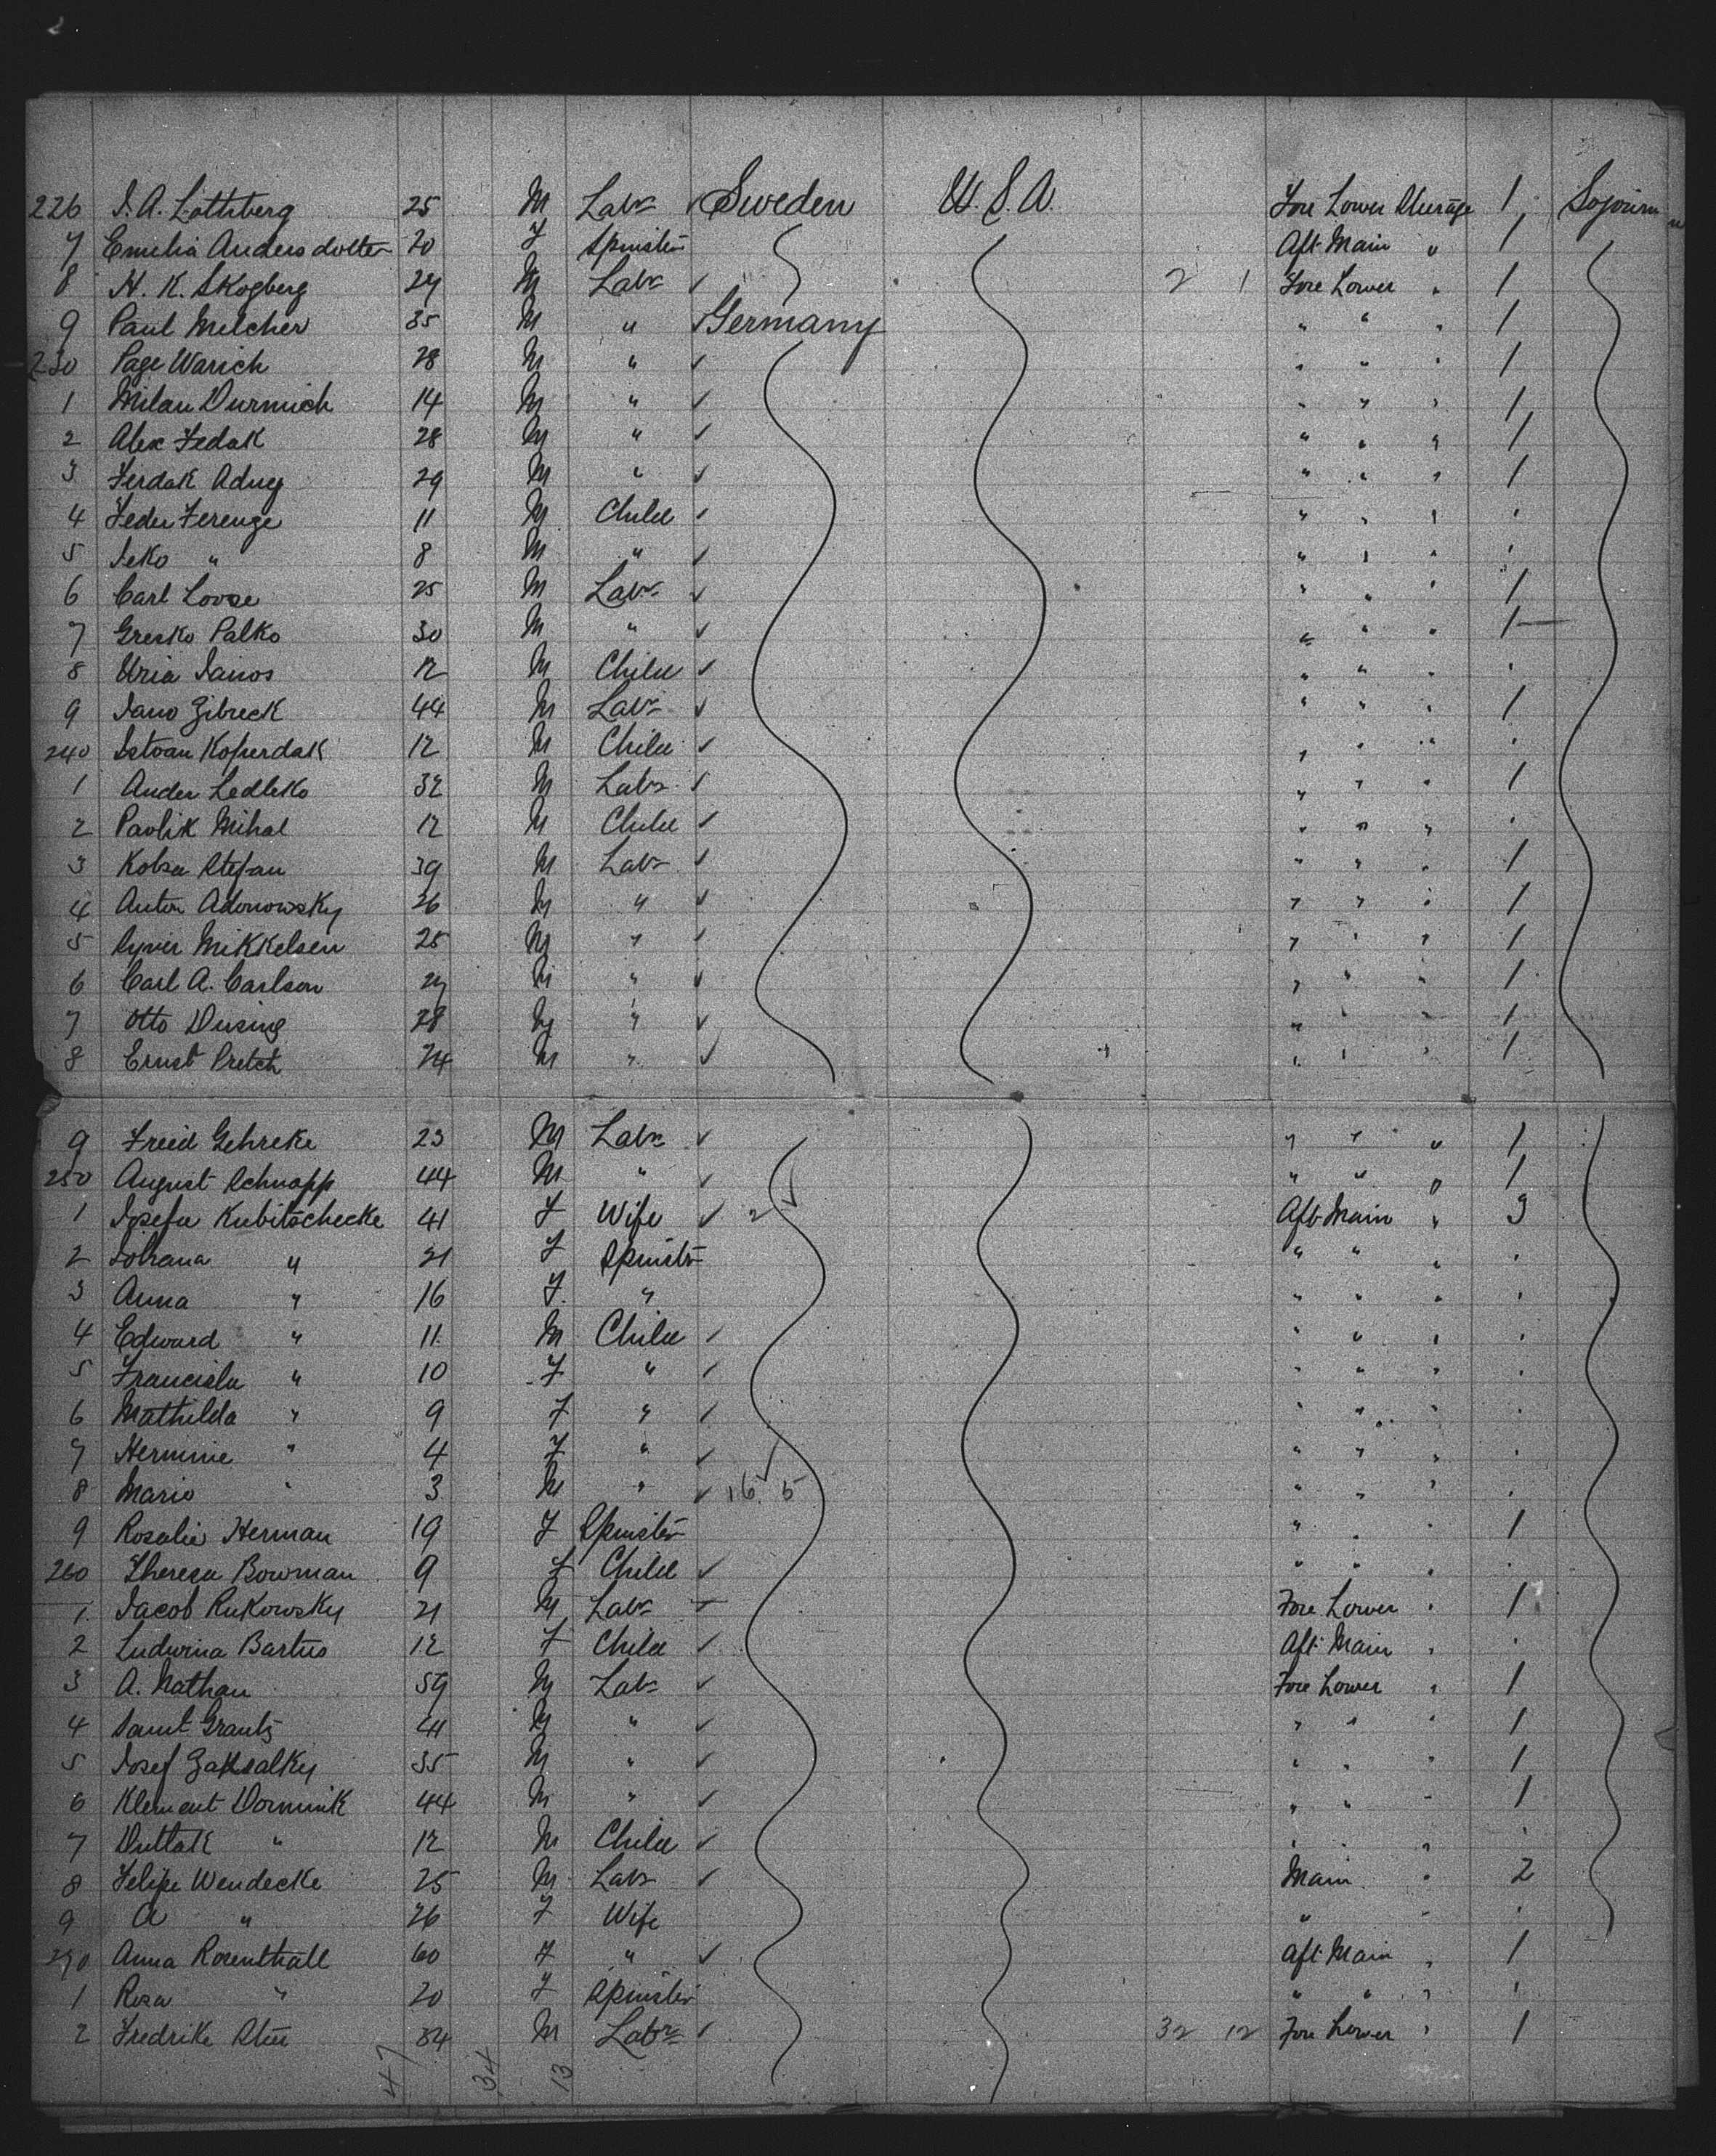 226 I. A. Lothberg 25 M Labr Sweden U.S.A. Fore Lower Steerage 1 Sojourn
7 Emelia Andersdotter 20 F Spinster Aft Main " 1
8 H. K. Skogberg 24 M Labr 2 1 Fore Lower " 1
9 Paul Melcher 35 M " Germany " " " 1
230 Page Warich 28 M " " " " 1
1 Milan Durmich 14 M " " " " 1
2 Alex Fedak 28 M " " " " 1
3 Ferdak 29 M " " " " 1
4 Feder Ferenge 11 M Child " " "
5 Seko " 8 M " " " "
6 Carl Loose 25 M Labr " " " 1
7 Gresko Palko 30 M " " " " 1
8 Uria Janos 12 M Child " " "
9 Jano Zibreck 44 M Labr " " " 1
240 Istvan Koperdak 12 M Child " " "
1 Ander Ledleko 32 M Labr " " " 1
2 Pavlik Mihal 12 M Child " " "
3 Kolsa Stefan 39 M Labr " " " 1
4 Anton Adonowsky 26 M " " " " 1
5 Mikkelsen 25 M " " " " 1
6 Carl A. Carlson 24 M " " " " 1
7 Otto Dusing 28 M " " " " 1
8 Ernst Pretch 24 M " " " " 1
9 Freid Gehreke 23 M Labr " " " 1
250 August Schnapp 44 M " " " " 1
1 Josefa Kubitschecke 41 F Wife 2 Aft Main " 3
2 " 21 F Spinster " " "
3 Anna " 16 F " " " "
4 Edward " 11 M Child " " "
5 Franciska " 10 F " " " "
6 Mathilda " 9 F " " " "
7 Hermine " 4 F " " " "
8 Mario " 3 M " 16 5 " " "
9 Rosalie Herman 19 F Spinster " " " 1
260 Theresa Bowman 9 F Child " " "
1 Jacob Rukowsky 21 M Labr Fore Lower " 1
2 Ludwina Bartus 12 F Child Aft Main "
3 A. Nathan 59 M Labr Fore Lower " 1
4 Grantz 41 M " " " " 1
5 Josef 35 M " " " " 1
6 Klement Dominik 44 M " " " " 1
7 Duttak " 12 M Child " " "
8 Felipe Wendecke 25 M Labr Main " 2
9 A " 26 F Wife " "
270 Anna Rosenthall 60 F " Aft Main " 1
1 Rosa " 20 F Spinster " " "
2 Fredrike 34 M Labr 32 12 Fore Lower " 1
47 34 13